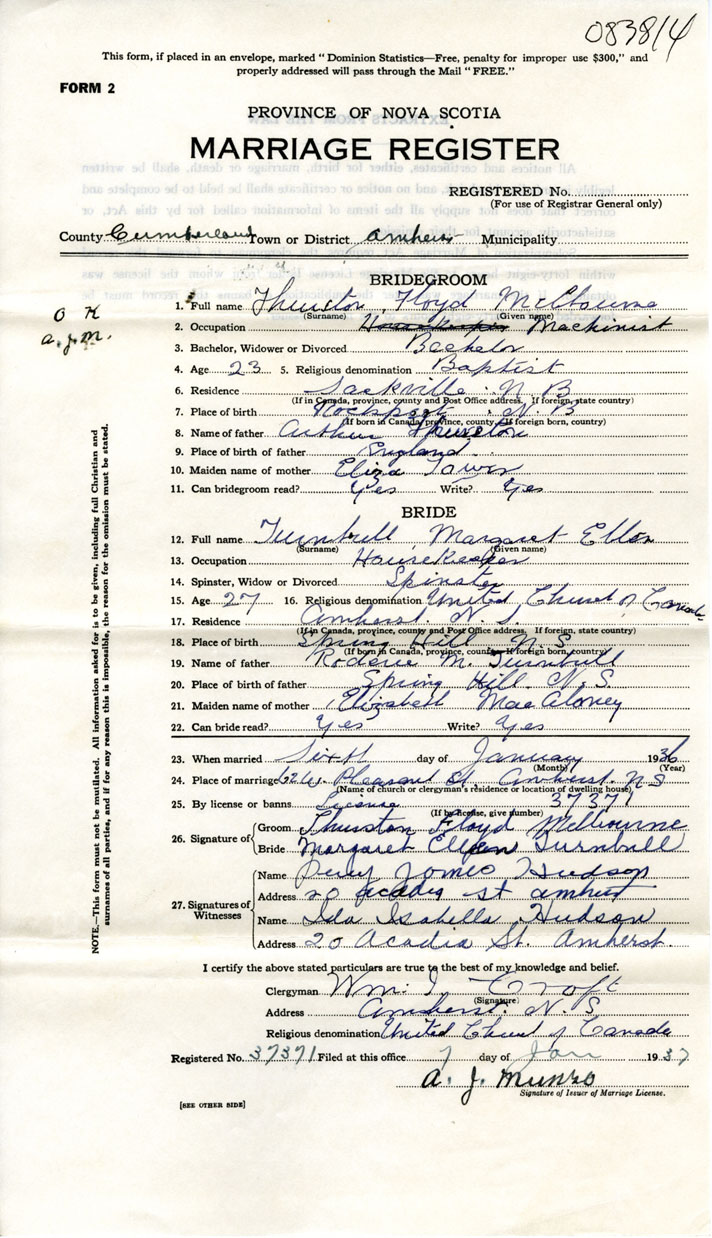 083814
This form, if placed in an envelope, marked "Dominion Statistics—Free, penalty for improper use $300," and
properly addressed will pass through the Mail "FREE."
FORM 2
PROVINCE OF NOVA SCOTIA
MARRIAGE REGISTER
REGISTERED No.
(For use of Registrar General only)
County Cumberland Town or District Amherst Municipality
O K
a. J. M.
BRIDEGROOM
1. Full name Thurston Floyd Melbourne
(Surname) (Given name)
2. Occupation Housekeeper Machinist
3. Bachelor, Widower or Divorced Bachelor
4. Age 23 5. Religious denomination Baptist
6. Residence Sackville N. B
(If in Canada, province, county and Post Office address. If foreign, state country)
7. Place of birth Rockport N. B
(If born in Canada, province, county. If foreign born, country)
8. Name of father Arthur Thurston
9. Place of birth of father England
10. Maiden name of mother Eliza Tower
11. Can bridegroom read? Yes Write? Yes
BRIDE
12. Full name Turnbull Margaret Ellen
(Surname) (Given name)
13. Occupation Housekeeper
14. Spinster, Widow or Divorced Spinster
15. Age 27 16. Religious denomination United Church of Canada
17. Residence Amherst. N. S.
(If in Canada, province, county and Post Office address. If foreign, state country)
18. Place of birth Spring Hill N. S
(If born in Canada, province, county. If foreign born, country)
19. Name of father M. Turnbull
20. Place of birth of father Spring Hill. N. S.
21. Maiden name of mother Elizabeth MacAloney
22. Can bride read? Yes Write? Yes
23. When married Sixth day of January 1936
(Month) (Year)
24. Place of marriage 62 W. Pleasant St. Amherst. N S
(Name of church or clergyman's residence or location of dwelling house)
25. By license or banns License 37371
(If by license, give number)
26. Signature of
Groom Thurston Floyd Melbourne
Bride Margaret Ellen Turnbull
27. Signatures of Witnesses
Name Percy James Hudson
Address 20 Acadia St Amherst
Name Ida Isabella Hudson
Address 20 Acadia St. Amherst
I certify the above stated particulars are true to the best of my knowledge and belief.
Clergyman Wm. I. Croft
(Signature)
Address Amherst N. S
Religious denomination United Church of Canada
Registered No. 37371 Filed at this office 7 day of Jan 1937
A. J. Munro
Signature of Issuer of Marriage License.
[SEE OTHER SIDE]
NOTE.—This form must not be mutilated. All information asked for is to be given, including full Christian and
surnames of all parties, and if for any reason this is impossible, the reason for the omission must be stated.